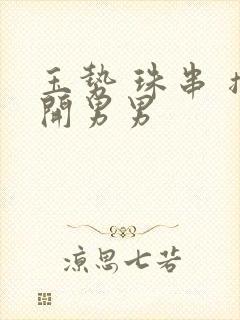 玉势 珠串
開男男
凉思七若